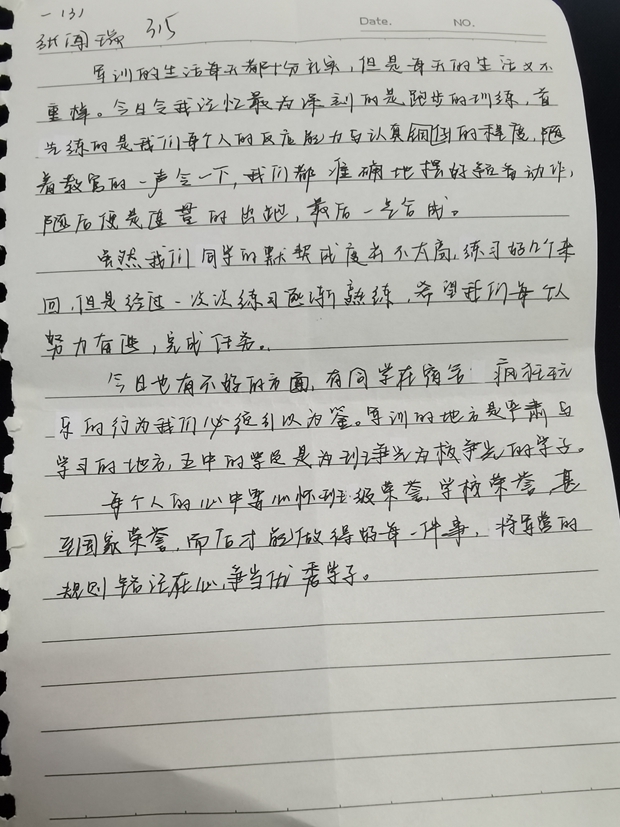 一(3)
Date. NO.
315
军训的生活每天都十分扎实，但是每天的生活又不
重样。今日令我记忆最为深刻的是跑步的训练，首
先练的是我们每个人的反应能力与认真的程度，随
着教官的一声令下，我们都准确地摆好预备动作，
随后便是的出跑，最后一气合成。
虽然我们同学的默契成度并不太高，练习好几个来
回，但是经过一次次练习逐渐熟练，希望我们每个人
努力奋进，完成任务。
今日也有不好的方面，有同学在宿舍疯狂玩
乐的行为我们必须引以为鉴。军训的地方是严肃与
学习的地方，五中的学子是为班争光为校争光的学子。
每个人的心中要心怀班级荣誉，学校荣誉，甚
至国家荣誉，而后才能做得好每一件事，将军营的
规则铭记在心，争当优秀学子。